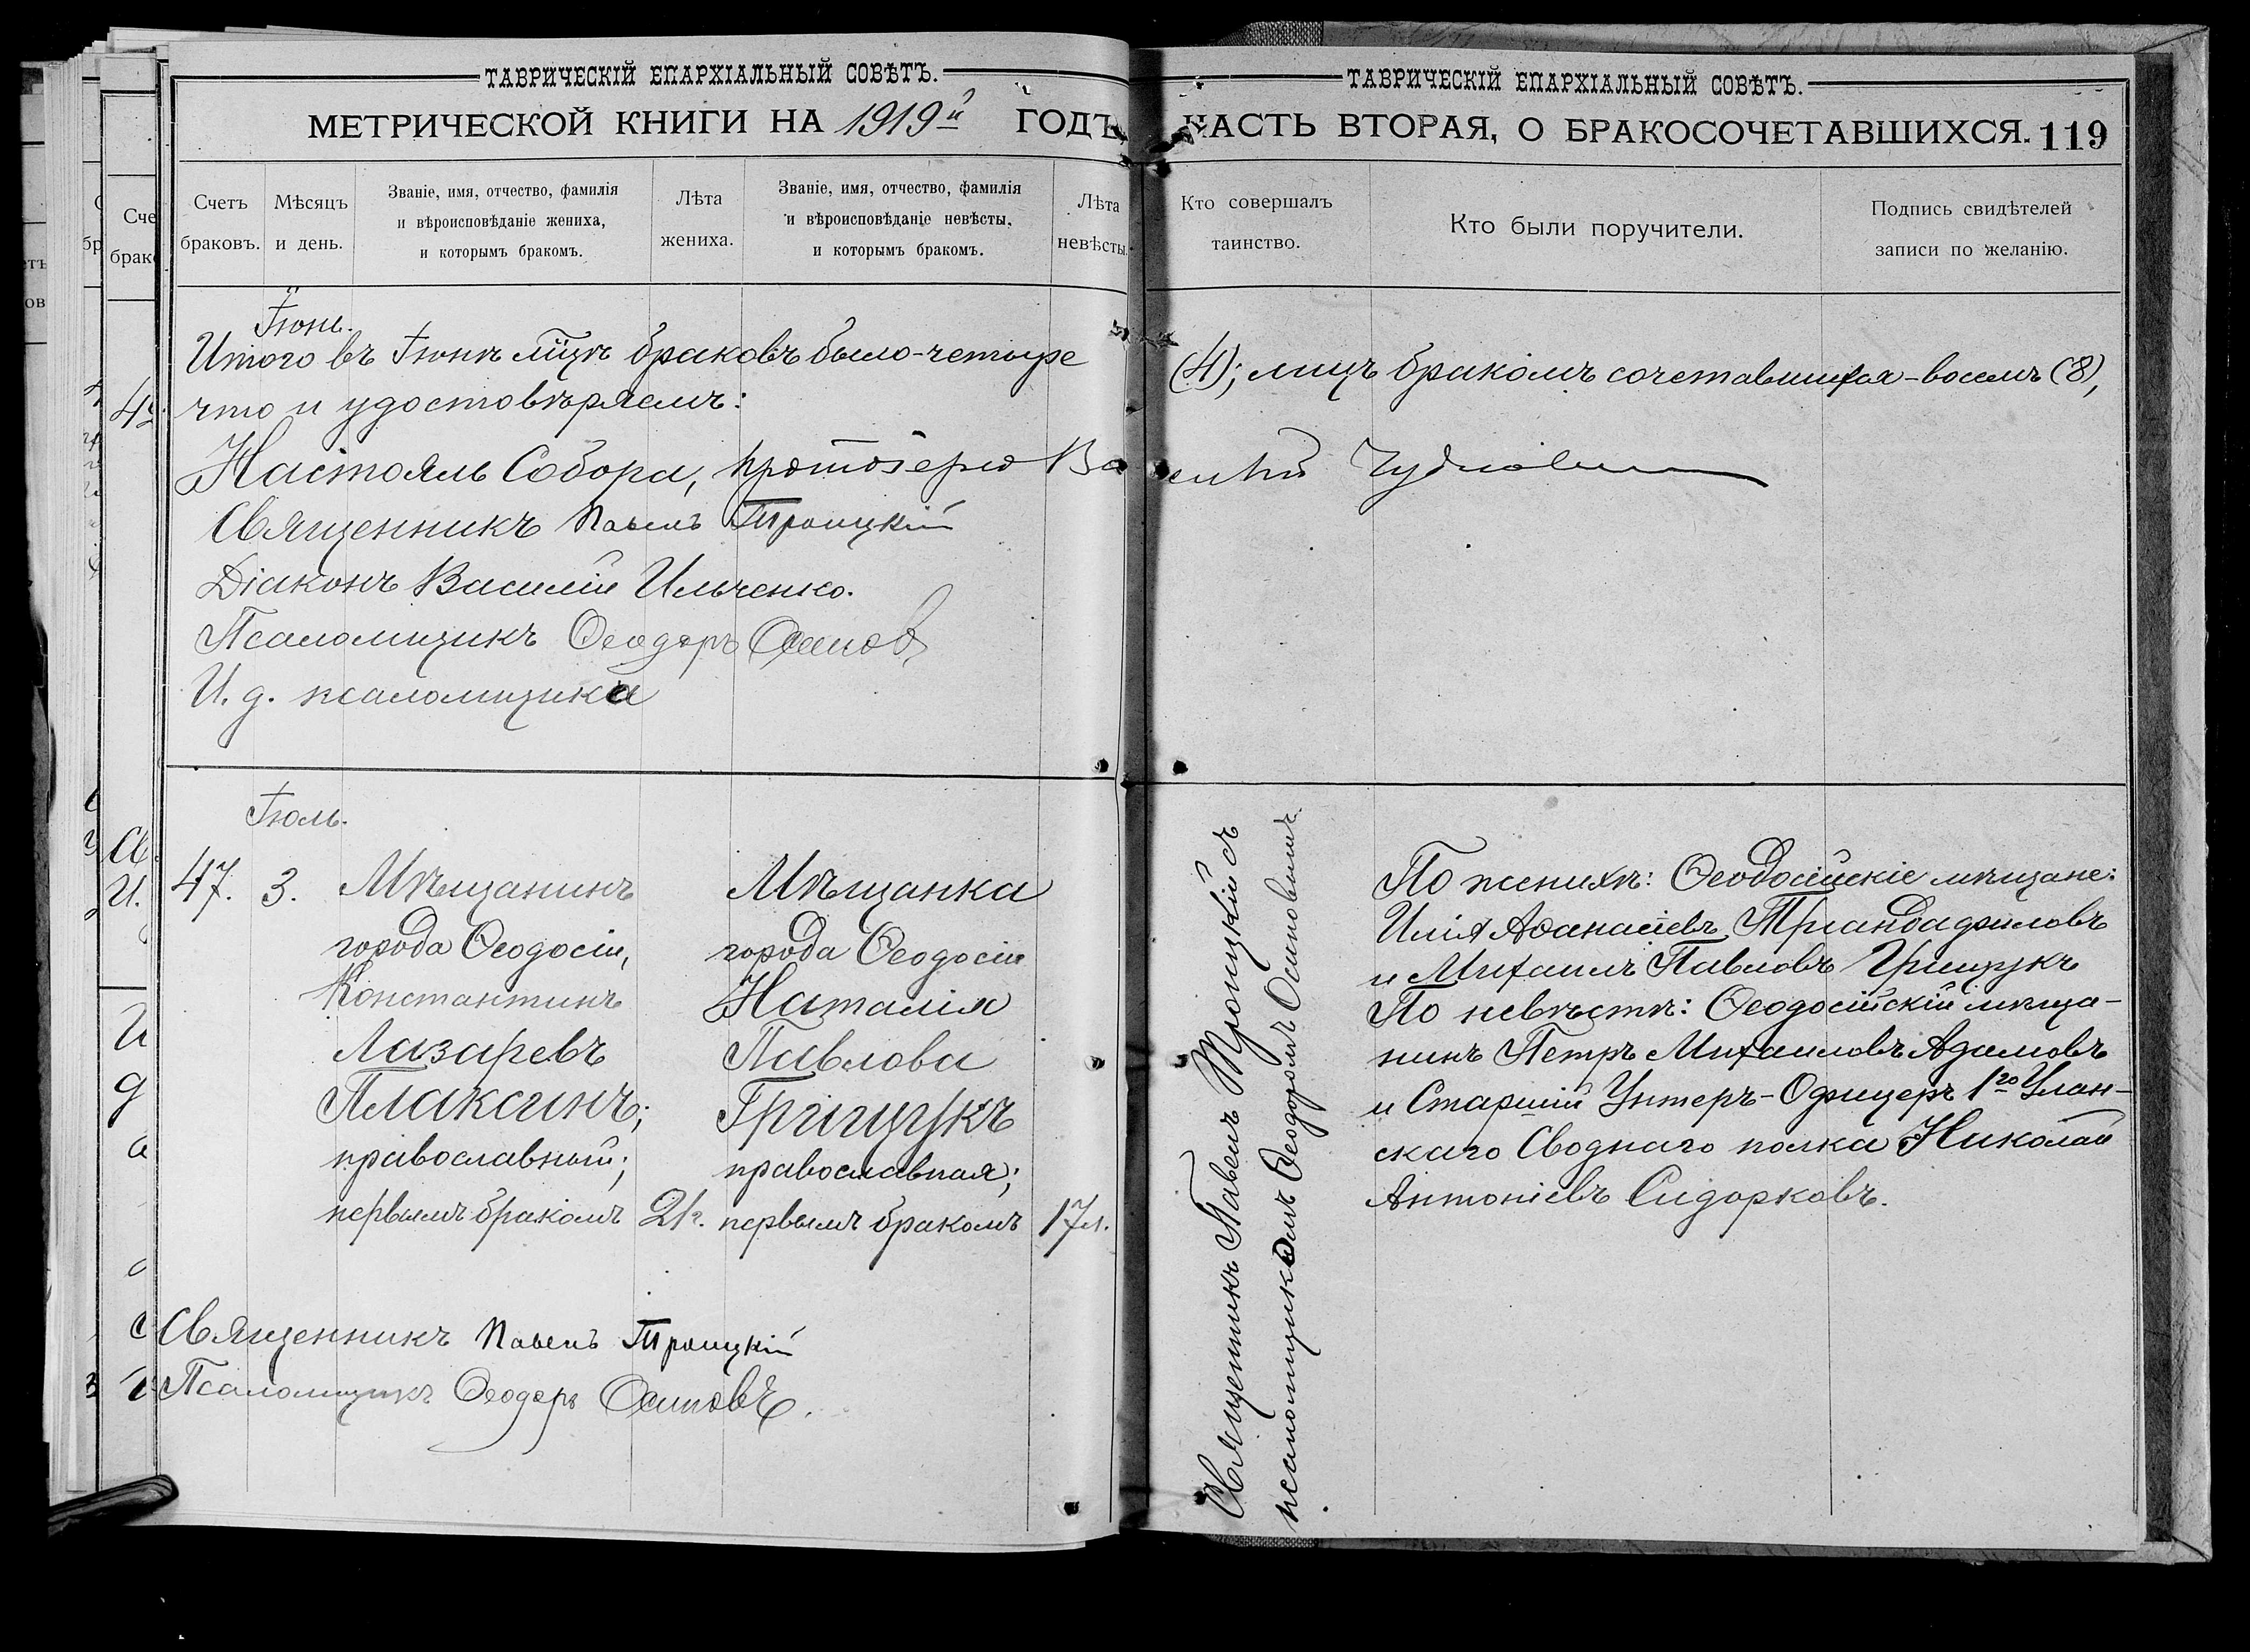 ТАВРИЧЕСКІЙ ЕПАРХІАЛЬНЫЙ СОВѢТЪ.
МЕТРИЧЕСКОЙ КНИГИ НА 1919й ГОДЪ
Счетъ браковъ.
Мѣсяцъ и день.
Званіе, имя, отчество, фамилія
и вѣроисповѣданіе жениха,
и которымъ бракомъ.
Лѣта жениха.
Званіе, имя, отчество, фамилія
и вѣроисповѣданіе невѣсты,
и которымъ бракомъ.
Лѣта невѣсты.
Іюнь.
Итого въ Іюнѣ м̃цѣ браковъ было-четыре
что и удостовѣряемъ:
Настояль Собора, протоіерей Ва
Священникъ Павелъ Троицкій
Діаконъ Василій Ильченко.
Псаломщикъ Ѳеодоръ Осипов
И. д. псаломщика
Іюль.
47. 3.
Мѣщанинъ
города Ѳеодосіи,
Константинъ
Лазаревъ
Плаксинъ;
православный;
первымъ бракомъ
21г.
Мѣщанка
города Ѳеодосіи
Наталія
Павлова
Грищукъ
православная;
первымъ бракомъ
17л.
Священникъ Павелъ Троицкій
Псаломщикъ Ѳеодоръ Осиповъ.
ТАВРИЧЕСКІЙ ЕПАРХІАЛЬНЫЙ СОВѢТЪ.
ЧАСТЬ ВТОРАЯ, О БРАКОСОЧЕТАВШИХСЯ. 119
Кто совершалъ
таинство.
Кто были поручители.
Подпись свидѣтелей
записи по желанію.
(4); лицъ бракомъ сочетавшихся-восемь (8),
Священникъ Павелъ Троицкій съ
псаломщикомъ Ѳеодоромъ Осиповымъ.
По женихѣ: Ѳеодосійскіе мѣщане:
Илія Аѳанасіевъ Тріандафиловъ
и Михаилъ Павловъ Грищукъ
По невѣстѣ: Ѳеодосійскій мѣща-
нинъ Петръ Михаиловъ Адамовъ
и Старшій Унтеръ-Офицеръ 1го Улан-
скаго Своднаго полка Николай
Антоніевъ Сидорковъ.